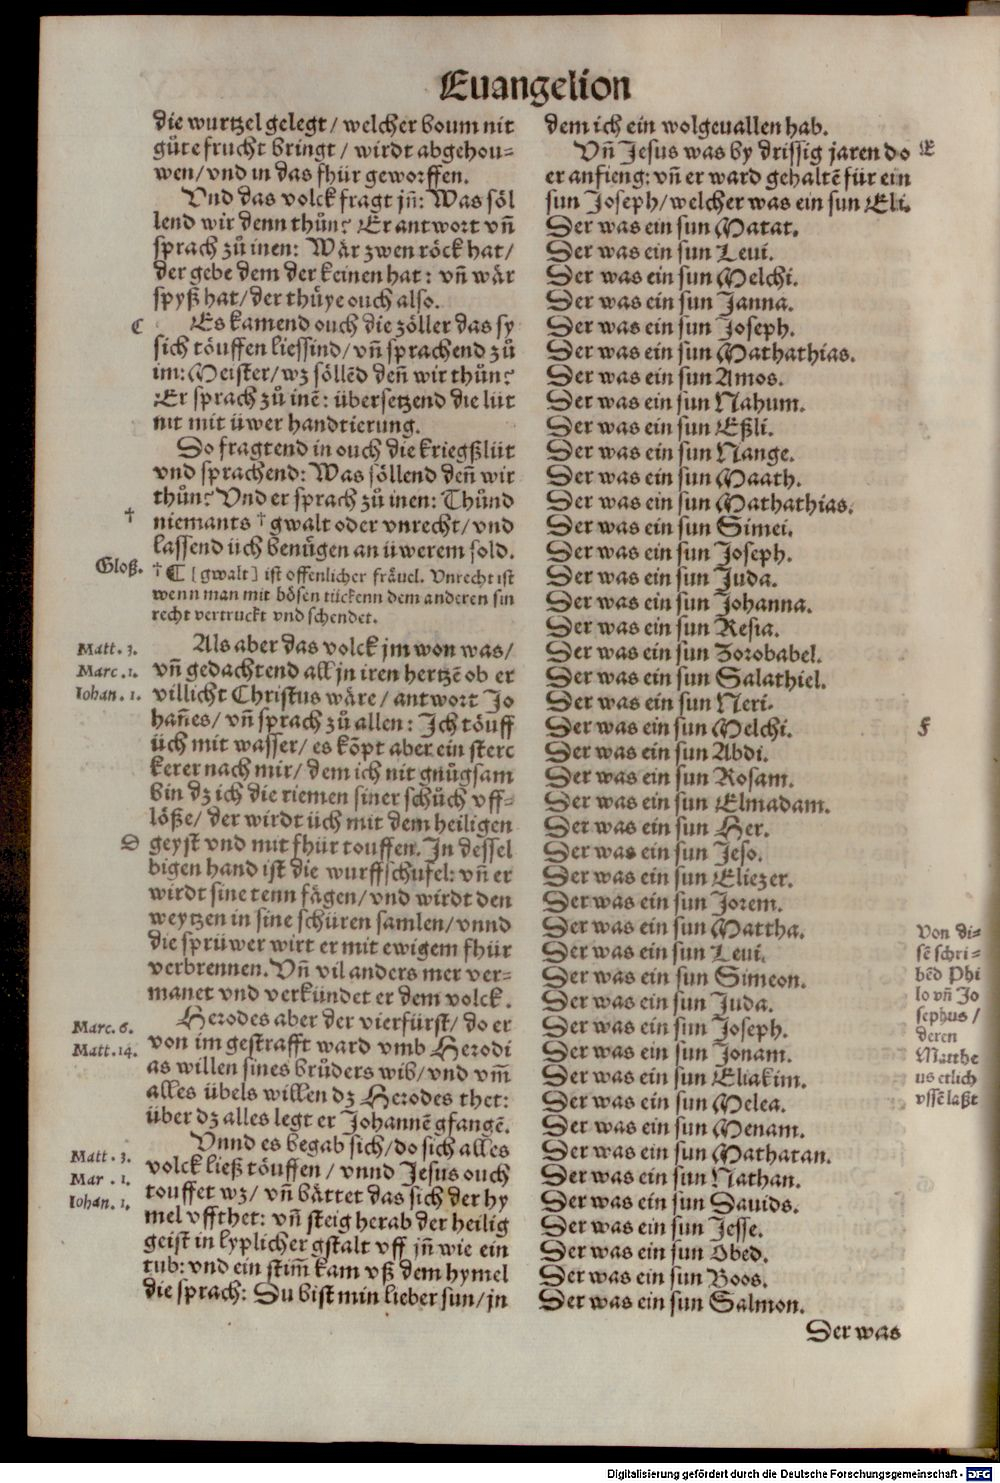 Euangelion
die wurtzel gelegt / welcher boum nit
gůte frucht bringt / wirdt abgehou⸗
wen / vnd in das fhür geworffen.
Vnd das volck fragt jn̄: Was söl
lend wir denn thůn? Er antwort vn̄
sprach zů inen: Wär zwen röck hat /
der gebe dem der keinen hat: vn̄ wär
spyß hat / der thůye ouch also.
C
Es kamend ouch die zöller das sy
sich töuffen liessind / vn̄ sprachend zů
im: Meister / wz söllēd den̄ wir thůn?
Er sprach zů inē: übersetzend die lüt
nit mit üwer handtierung.
So fragtend in ouch die kriegßlüt
vnd sprachend: Was söllend den̄ wir
thůn? Vnd er sprach zů inen: Thůnd
†
niemants † gwalt oder vnrecht / vnd
lassend üch benůgen an üwerem sold.
Gloß.
† ¶ [gwalt] ist offenlicher fräuel. Vnrecht ist
wenn man mit bösen tückenn dem anderen sin
recht vertruckt vnd schendet.
Matt. 3.
Marc. 1.
Iohan. 1.
Als aber das volck jm won was /
vn̄ gedachtend all jn iren hertzē ob er
villicht Christus wäre / antwort Jo
han̄es / vn̄ sprach zů allen: Ich töuff
üch mit wasser / es kōpt aber ein sterc
kerer nach mir / dem ich nit gnůgsam
bin dz ich die riemen siner schůch vff⸗
löße / der wirdt üch mit dem heiligen
D
geyst vnd mit fhür touffen. In dessel
bigen hand ist die wurffschufel: vn̄ er
wirdt sine tenn fägen / vnd wirdt den
weytzen in sine schüren samlen / vnnd
die sprüwer wirt er mit ewigem fhür
verbrennen. Vn̄ vil anders mer ver⸗
manet vnd verkündet er dem volck.
Marc. 6.
Matt. 14.
Herodes aber der vierfürst / do er
von im gestrafft ward vmb Herodi
as willen sines brůders wib / vnd vm̄
alles übels willen dz Herodes thet:
über dz alles legt er Johannē gfangē.
Matt. 3.
Mar. 1.
Iohan. 1.
Vnnd es begab sich / do sich alles
volck ließ töuffen / vnnd Jesus ouch
touffet wz / vn̄ bättet das sich der hy
mel vffthet: vn̄ steig herab der heilig
geist in lyplicher gstalt vff jn̄ wie ein
tub: vnd ein stim̄ kam vß dem hymel
die sprach: Du bist min lieber sun / jn
dem ich ein wolgeuallen hab.
E
Vn̄ Jesus was by drissig jaren do
er anfieng: vn̄ er ward gehaltē für ein
sun Joseph / welcher was ein sun Eli.
Der was ein sun Matat.
Der was ein sun Leui.
Der was ein sun Melchi.
Der was ein sun Janna.
Der was ein sun Joseph.
Der was ein sun Mathathias.
Der was ein sun Amos.
Der was ein sun Nahum.
Der was ein sun Eßli.
Der was ein sun Nange.
Der was ein sun Maath.
Der was ein sun Mathathias.
Der was ein sun Simei.
Der was ein sun Joseph.
Der was ein sun Juda.
Der was ein sun Johanna.
Der was ein sun Resia.
Der was ein sun Zorobabel.
Der was ein sun Salathiel.
Der was ein sun Neri.
F
Der was ein sun Melchi.
Der was ein sun Abdi.
Der was ein sun Rosam.
Der was ein sun Elmadam.
Der was ein sun Her.
Der was ein sun Jeso.
Der was ein sun Eliezer.
Der was ein sun Jorem.
Der was ein sun Mattha.
Der was ein sun Leui.
Der was ein sun Simeon.
Der was ein sun Juda.
Der was ein sun Joseph.
Der was ein sun Jonam.
Der was ein sun Eliakim.
Der was ein sun Melea.
Der was ein sun Menam.
Der was ein sun Mathatan.
Der was ein sun Nathan.
Der was ein sun Dauids.
Der was ein sun Jesse.
Der was ein sun Obed.
Der was ein sun Boos.
Der was ein sun Salmon.
Von di⸗
sē schri⸗
bēd Phi
lo vn̄ Jo
sephus /
deren
Matthe
us etlich
vssē laßt
Der was
Digitalisierung gefördert durch die Deutsche Forschungsgemeinschaft - DFG